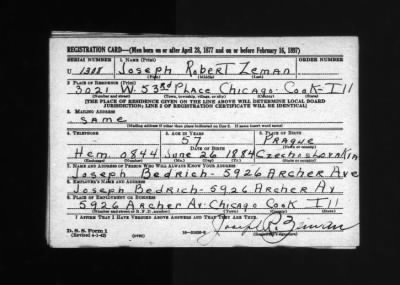 REGISTRATION CARD—(Men born on or after April 28, 1877 and on or before February 16, 1897)
SERIAL NUMBER 1. NAME (Print) ORDER NUMBER
U 1308 Joseph Robert Zeman
(First) (Middle) (Last)
2. PLACE OF RESIDENCE (Print)
3021 W. 53rd Place Chicago - Cook - Ill
(Number and street) (Town, township, village, or city) (County) (State)
[THE PLACE OF RESIDENCE GIVEN ON THE LINE ABOVE WILL DETERMINE LOCAL BOARD
JURISDICTION; LINE 2 OF REGISTRATION CERTIFICATE WILL BE IDENTICAL]
3. MAILING ADDRESS
same
[Mailing address if other than place indicated on line 2. If same insert word same]
4. TELEPHONE 5. AGE IN YEARS 6. PLACE OF BIRTH
57 Prague
DATE OF BIRTH (Town or county)
Hem 0844 June 26 1884 Czechoslovakia
(Exchange) (Number) (Mo.) (Day) (Yr.) (State or country)
7. NAME AND ADDRESS OF PERSON WHO WILL ALWAYS KNOW YOUR ADDRESS
Joseph Bedrich - 5926 Archer Ave
8. EMPLOYER'S NAME AND ADDRESS
Joseph Bedrich - 5926 Archer Av
9. PLACE OF EMPLOYMENT OR BUSINESS
5926 Archer Av. Chicago Cook Ill
(Number and street or R. F. D. number) (Town) (County) (State)
I AFFIRM THAT I HAVE VERIFIED ABOVE ANSWERS AND THAT THEY ARE TRUE.
D. S. S. Form 1
(Revised 4-1-42) (over)
Joseph R. Zeman